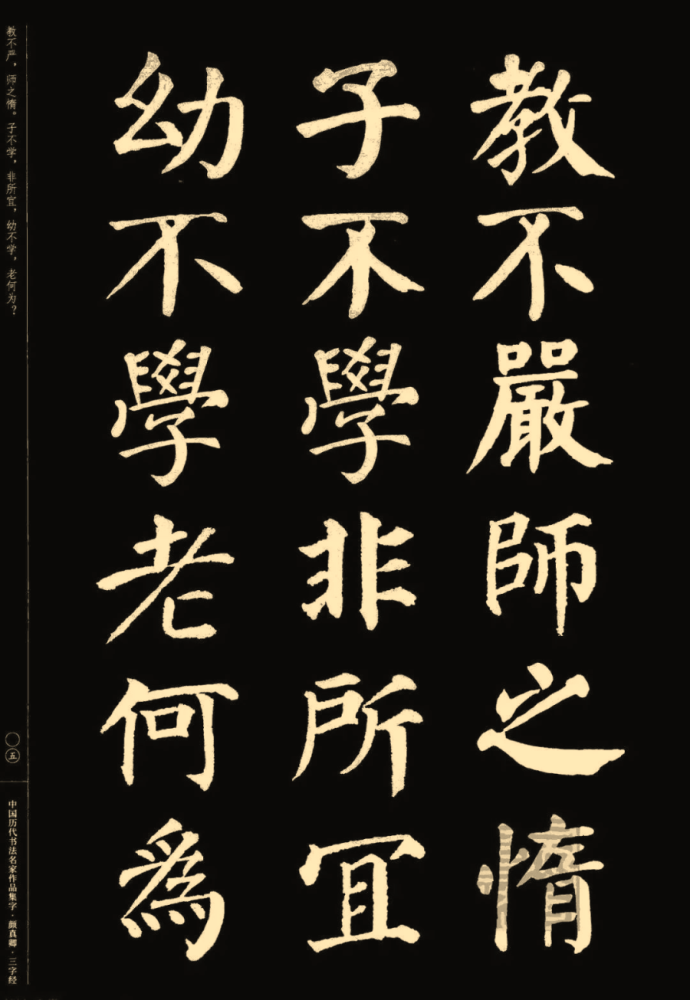 教不嚴師之惰
子不學非所宜
幼不學老何為
教不严，师之惰。子不学，非所宜，幼不学，老何为？
〇五
中国历代书法名家作品集字·颜真卿·三字经